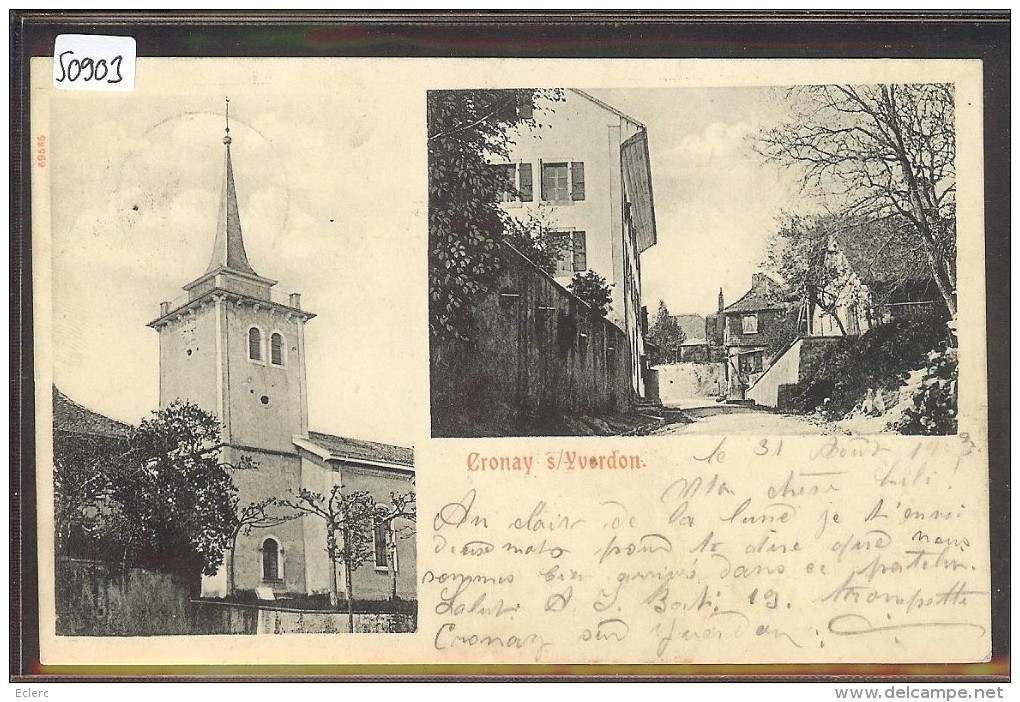 50903
69585
Cronay s/Yverdon.
le 31 Août 19
Mon chère Lili.
Au clair de la lune je t'envoi
deuse mots pour te dire que nous
sommes bien arrivé dans ce patelin.
Salut. A. S. 19. trompette
Cronay sur Yverdon.
Eclerc
www.delcampe.net